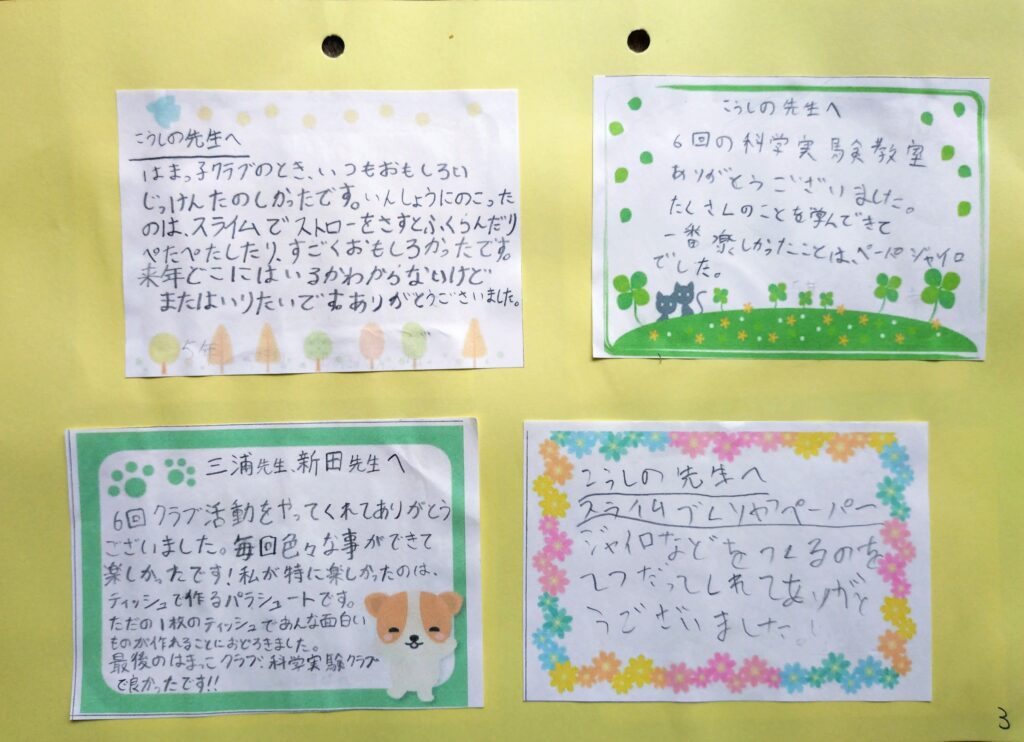 こうしの先生へ
はまっ子クラブのとき、いつもおもしろい
じっけんたのしかったです。いんしょうにのこった
のは、スライムでストローをさすとふくらんだり
ぺたぺたしたり、すごくおもしろかったです。
来年どこにはいるかわからないけど
またはいりたいです。ありがとうございました。
5年
こうしの先生へ
6回の科学実験教室
ありがとうございました。
たくさんのことを学んできて
一番楽しかったことは、ペーパージャイロ
でした。
三浦先生、新田先生へ
6回クラブ活動をやってくれてありがとう
ございました。毎回色々な事ができて
楽しかったです!私が特に楽しかったのは、
ティッシュで作るパラシュートです。
ただの1枚のティッシュであんな面白い
ものが作れることにおどろきました。
最後のはまっこクラブ:科学実験クラブ
で良かったです!!
こうしの先生へ
スライムづくりやペーパー
ジャイロなどをつくるのを
てつだってくれてありがと
うございました!
3